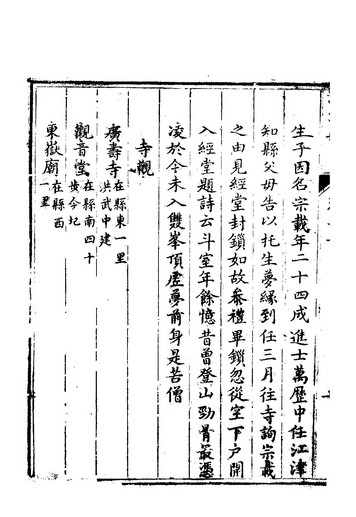 生子因名宗載年二十四成進士萬歷中任江津
知縣父毋告以托生夢緣到任三月往寺詢宗載
之由見經堂封鎖如故叅禮畢鎖忽從空下戶開
入經堂題詩云斗室年餘憶昔曾登山勁骨最憑
凌於今未入雙峯頂虛夢前身是苦僧
寺觀
廣壽寺在縣東一里
洪武中建
觀音堂在縣南四十
黄今圮
東嶽廟在縣西
一里